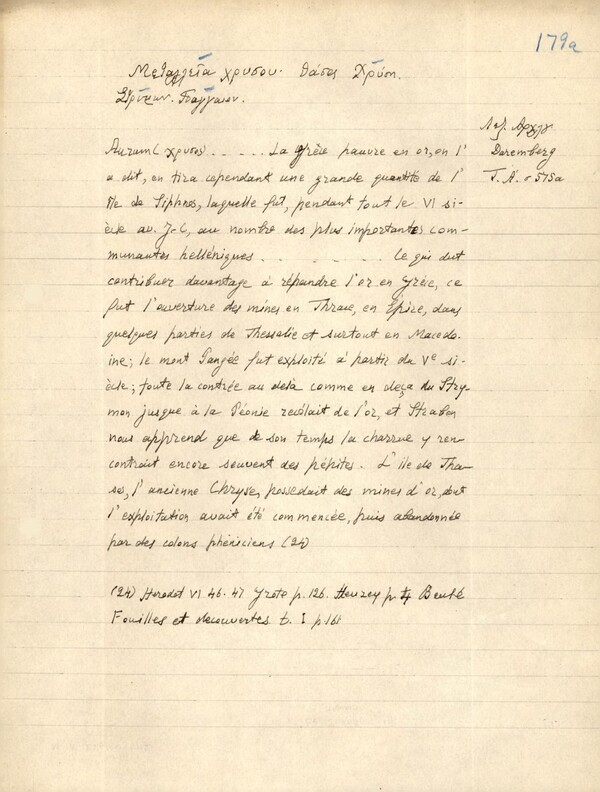 179a
Μεταλλεῖα χρυσου. Θάσος Χρύση.
Στρύμων. Παγγαιον.
Λεξ. Αρχγ
Daremberg
T. A'. σ 575a
Aurum (χρυσος) . . . . . La Grèce pauvre en or, on l'
a dit, en tira cependant une grande quantité de l'
île de Siphnos, laquelle fut, pendant tout le VI si-
ècle av. J-C, au nombre des plus importantes com-
munautes helléniques . . . . . . . Ce qui dut
contribuer davantage à répandre l'or en Grèce, ce
fut l'ouverture des mines en Thrace, en Épire, dans
quelques parties de Thessalie et surtout en Macedo-
ine; le mont Pangée fut exploité à partir du Ve si-
ècle; toute la contrée au delà comme en deça du Stry-
mon jusque à la Péonie recélait de l'or, et Strabon
nous apprend que de son temps la charrue y ren
contrait encore souvent des pépites. L'île de Tha-
sos, l'ancienne Chryse, possedait des mines d'or, dont
l'exploitation avait été commencée, puis abandonnée
par des colons phéniciens (24)
(24) Herodot VI 46. 47 Grote p. 126. Heuzey p. 4 Beulé
Fouilles et decouvertes t. I p 161